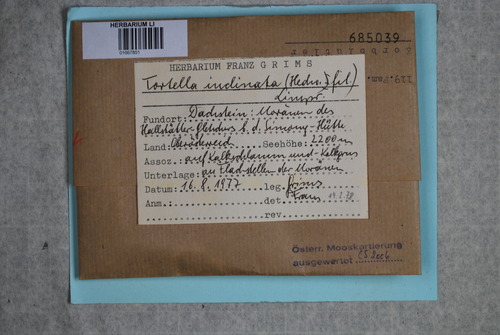 HERBARIUM LI
685039
HERBARIUM FRANZ GRIMS
Tortella inclinata (Hedw. f. fil.)
Limpr.
Fundort: Dachstein: Moränen des
Hallstätter Gletschers b. d. Simony-Hütte
Land: Oberösterreich Seehöhe: 2200 m
Assoz. auf Kalkschlamm und -Kalkgrus
Unterlage: an Flachstellen der Moränen
Datum: 16.8.1977 leg. Grims
Anm.: det. Grims
rev.
Österr. Mooskartierung
ausgewertet